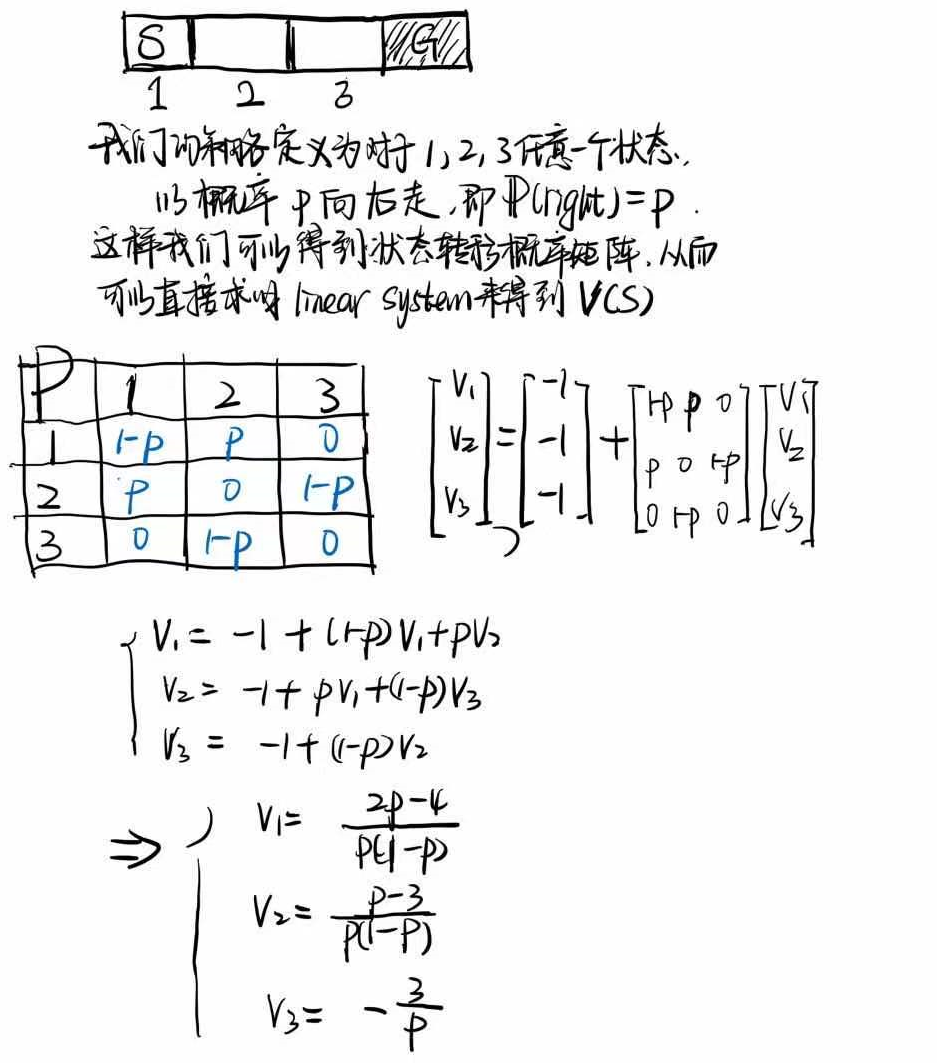 S G
1 2 3
我们的策略定义为对于1,2,3任意一个状态,
以概率 p 向右走,即 ℙ(right)=p.
这样我们可以得到状态转移概率矩阵,从而
可以直接求解 linear system来得到 V(S)
P 1 2 3
1 1-p p 0
2 p 0 1-p
3 0 1-p 0
[V₁ V₂ V₃] = [-1 -1 -1] + [1-p p 0 p 0 1-p 0 1-p 0] [V₁ V₂ V₃]
V₁ = -1 + (1-p)V₁+pV₂
V₂ = -1+ pV₁+(1-p)V₃
V₃ = -1+ (1-p)V₂
⇒ V₁= (2p-4)/(p(1-p))
V₂= (p-3)/(p(1-p))
V₃= -3/p